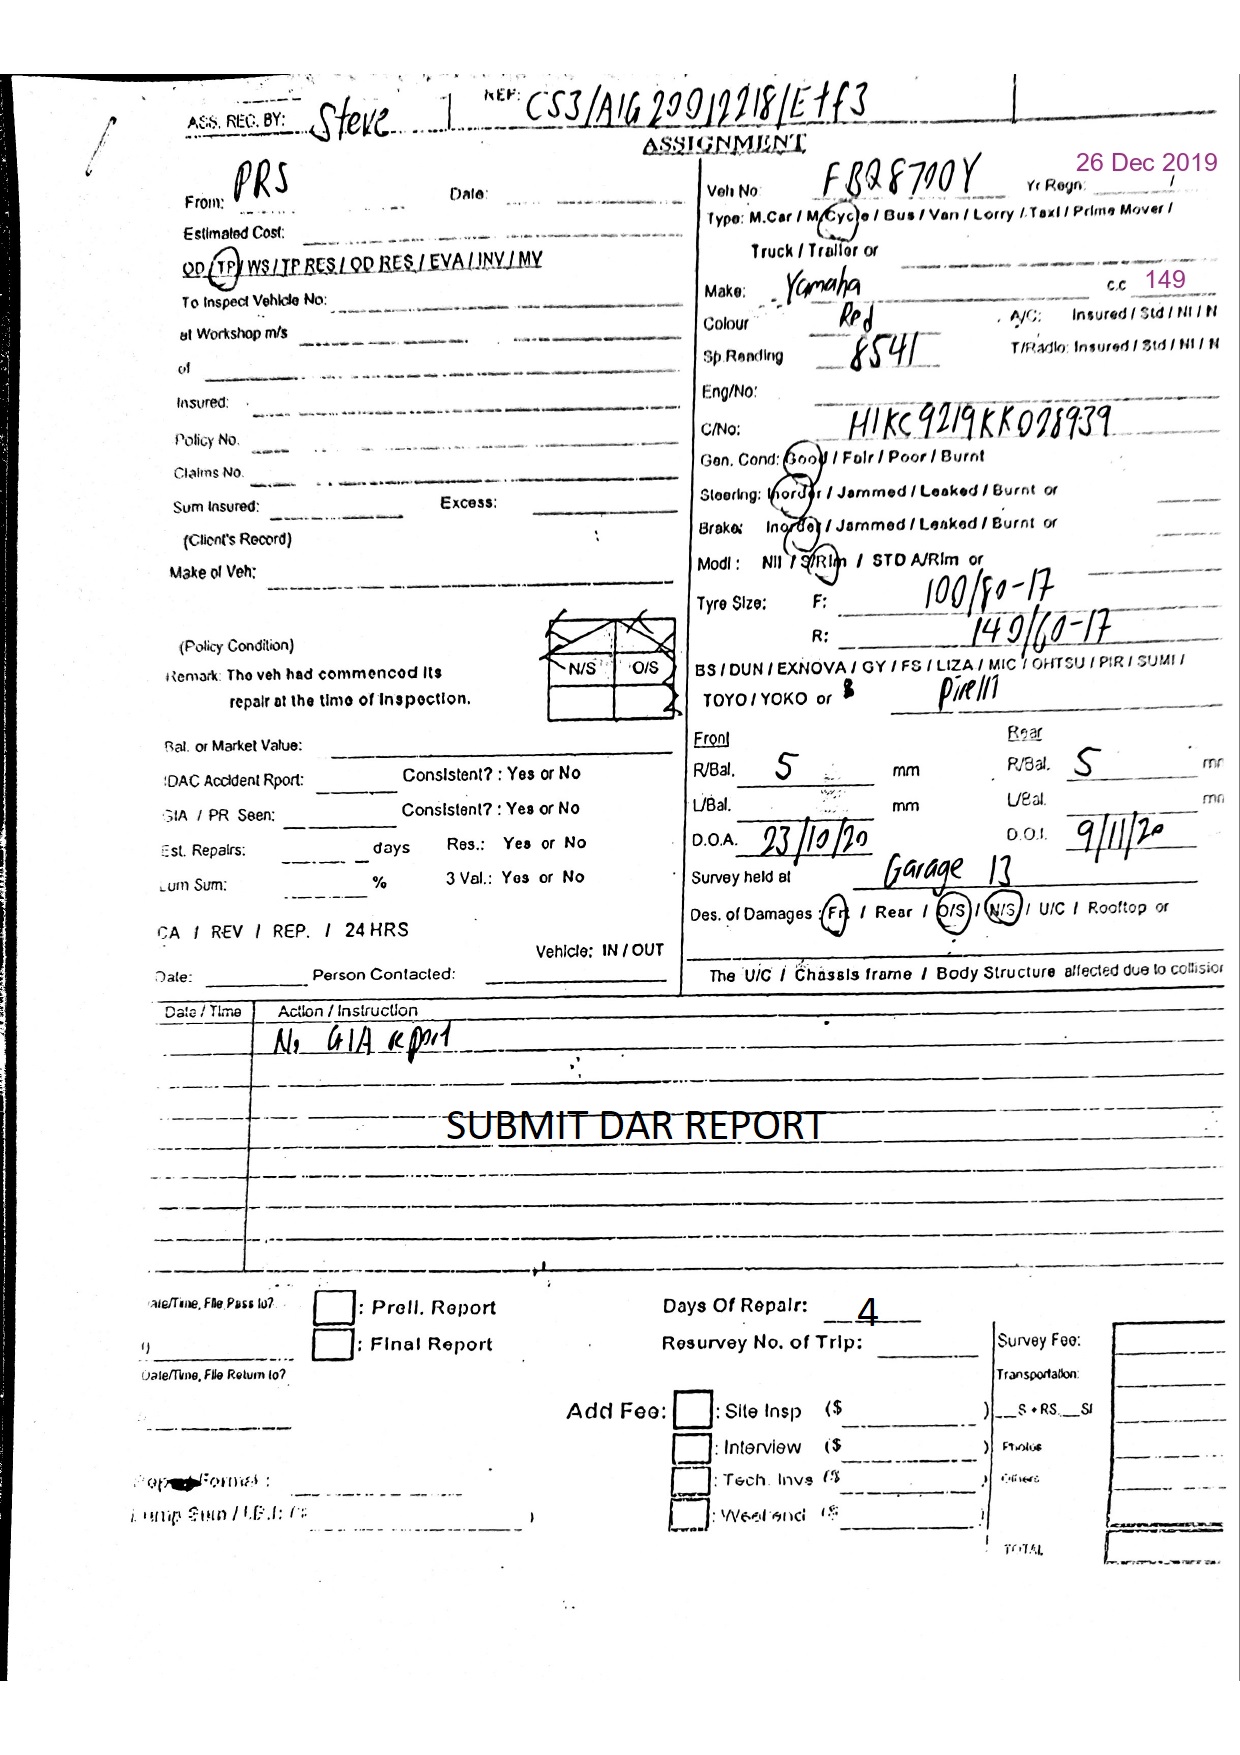 ASS. REC. BY: Steve REF: CS3/AIG20012218/Etf3
ASSIGNMENT
26 Dec 2019
From: PRS Date:
Estimated Cost:
OD / TP / WS / TP RES / OD RES / EVA / INV / MV
To Inspect Vehicle No:
at Workshop m/s
of
Insured:
Policy No.
Claims No.
Sum Insured: Excess:
(Client's Record)
Make of Veh:
(Policy Condition)
Remark: The veh had commenced its
repair at the time of inspection.
N/S O/S
Bal. or Market Value:
IDAC Accident Rport: Consistent? : Yes or No
GIA / PR Seen: Consistent? : Yes or No
Est. Repairs: days Res.: Yes or No
Lum Sum: % 3 Val.: Yes or No
CA / REV / REP. / 24 HRS
Vehicle: IN / OUT
Date: Person Contacted:
Veh No: Yr Regn: /
Type: M.Car / M/Cycle / Bus / Van / Lorry / Taxi / Prime Mover /
Truck / Trailor or
Make: Yamaha c.c 149
Colour Red A/C: Insured / Std / NI / N
Sp.Reading 8541 T/Radio: Insured / Std / NI / N
Eng/No:
C/No:
Gen. Cond: Good / Fair / Poor / Burnt
Steering: Inorder / Jammed / Leaked / Burnt or
Brake: Inorder / Jammed / Leaked / Burnt or
Modi : Nil / S/Rim / STD A/Rim or
Tyre Size: F: 100/80-17
R: 140/60-17
BS / DUN / EXNOVA / GY / FS / LIZA / MIC / OHTSU / PIR / SUMI /
TOYO / YOKO or Pirelli
Front Rear
R/Bal. 5 mm R/Bal. 5 mm
L/Bal. mm L/Bal. mm
D.O.A. 23/10/20 D.O.I. 9/11/20
Survey held at Garage 13
Des. of Damages : Frt / Rear / O/S / N/S / U/C / Rooftop or
The U/C / Chassis frame / Body Structure affected due to collision
Date / Time Action / Instruction
No GIA report
SUBMIT DAR REPORT
Date/Time, File Pass to?
: Preli. Report
: Final Report
Date/Time, File Return to?
Days Of Repair: 4
Resurvey No. of Trip:
Add Fee: : Site Insp ($ )
: Interview ($ )
: Tech. Invs ($ )
: Weekend ($ )
Survey Fee:
Transportation:
S + RS. SI
Photos
Others
TOTAL
Format :
Lump Sum / I.B.I: ($ )